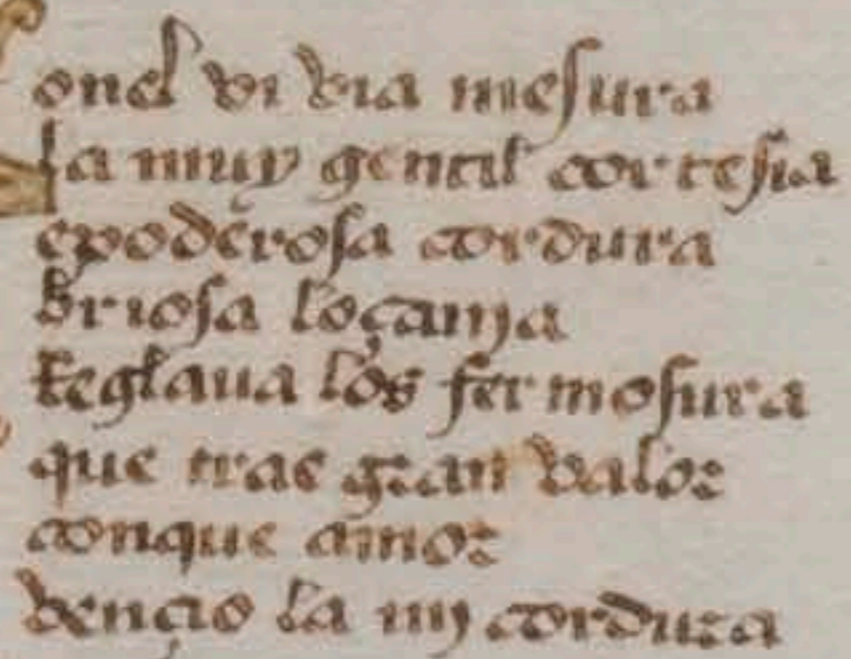 onel vi bia mesura
la muy gentil cortesia
epoderosa cordura
briosa loçanja
Reglaua los fermosura
que trae gran valor
conque amor
vençio la mj cordura